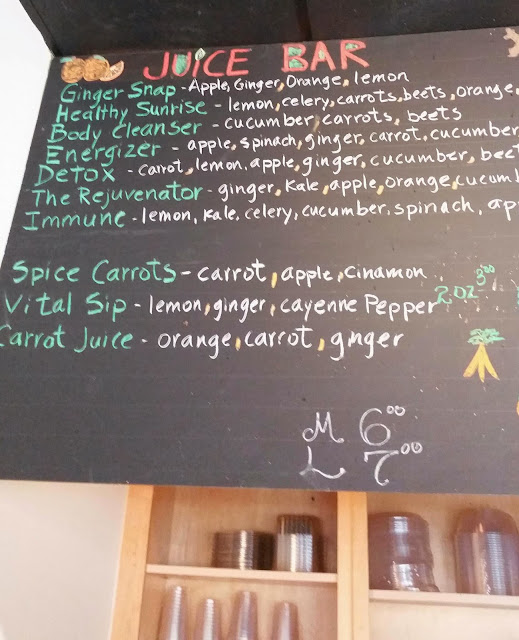 JUICE BAR
Ginger Snap - Apple, Ginger, Orange, lemon
Healthy Sunrise - lemon, celery, carrots, beets, orange,
Body Cleanser - cucumber, carrots, beets
Energizer - apple, spinach, ginger, carrot, cucumber
Detox - carrot, lemon, apple, ginger, cucumber, beet
The Rejuvenator - ginger, Kale, apple, orange, cucumb
Immune - lemon, kale, celery, cucumber, spinach, ap
Spice Carrots - carrot, apple, cinamon
Vital Sip - lemon, ginger, cayenne Pepper 2oz 3.00
Carrot Juice - orange, carrot, ginger
M 6.00
L 7.00